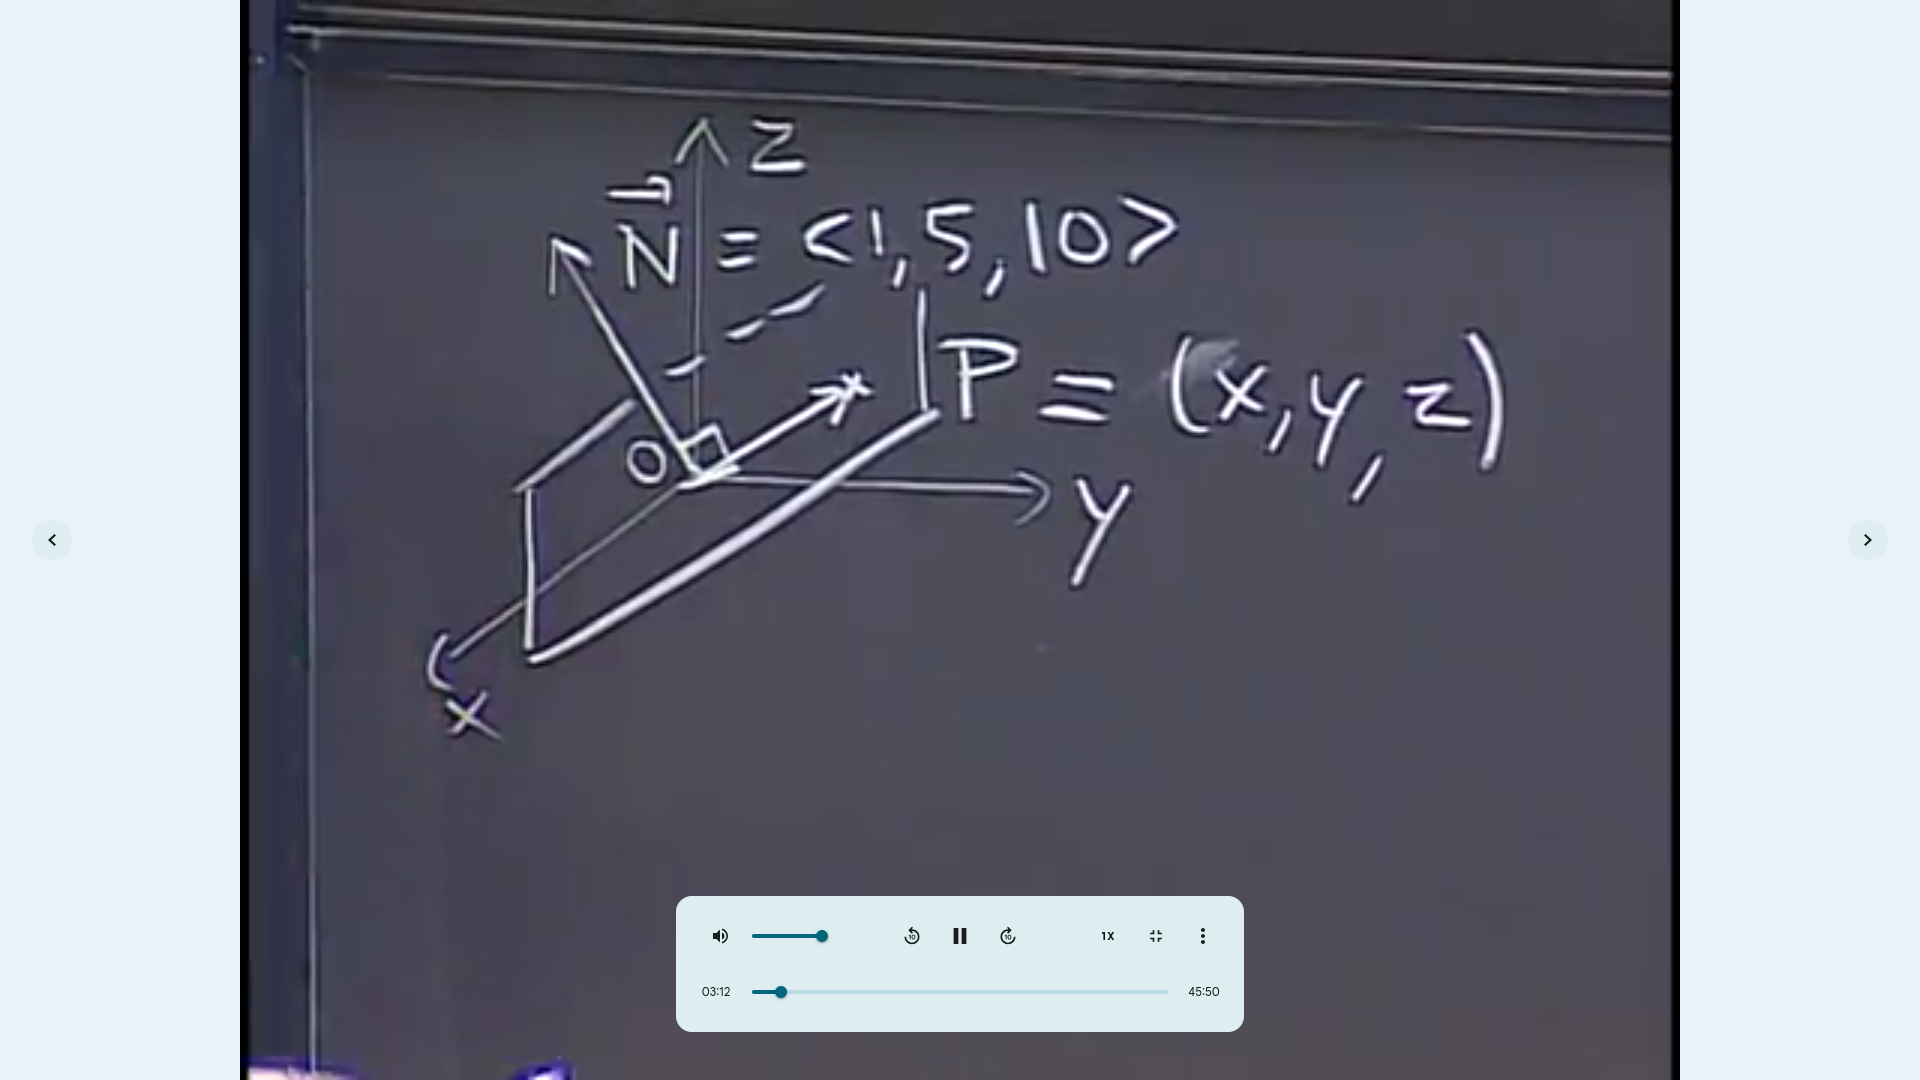 Z
N = <1, 5, 10>
P = (x, y, z)
O
y
x
1X
03:12
45:50